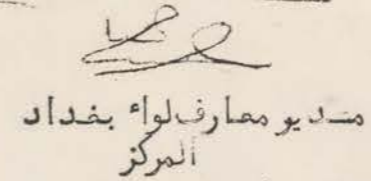 مديو معارف لواء بغداد
المركز